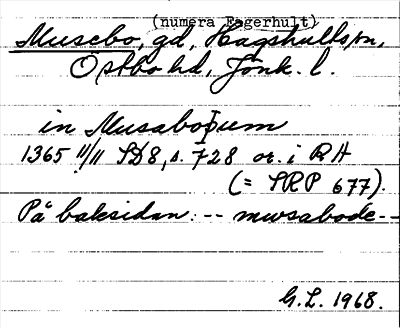 (numera Fagerhult)
Musebo, gd, Hagshults sn,
Östbo hd, Jönk. l.
in Musaboþum
1365 11/11 SD 8, s. 728 or. i RA
(= SRP 677).
På baksidan: -- mwsabode--
G.L. 1968.